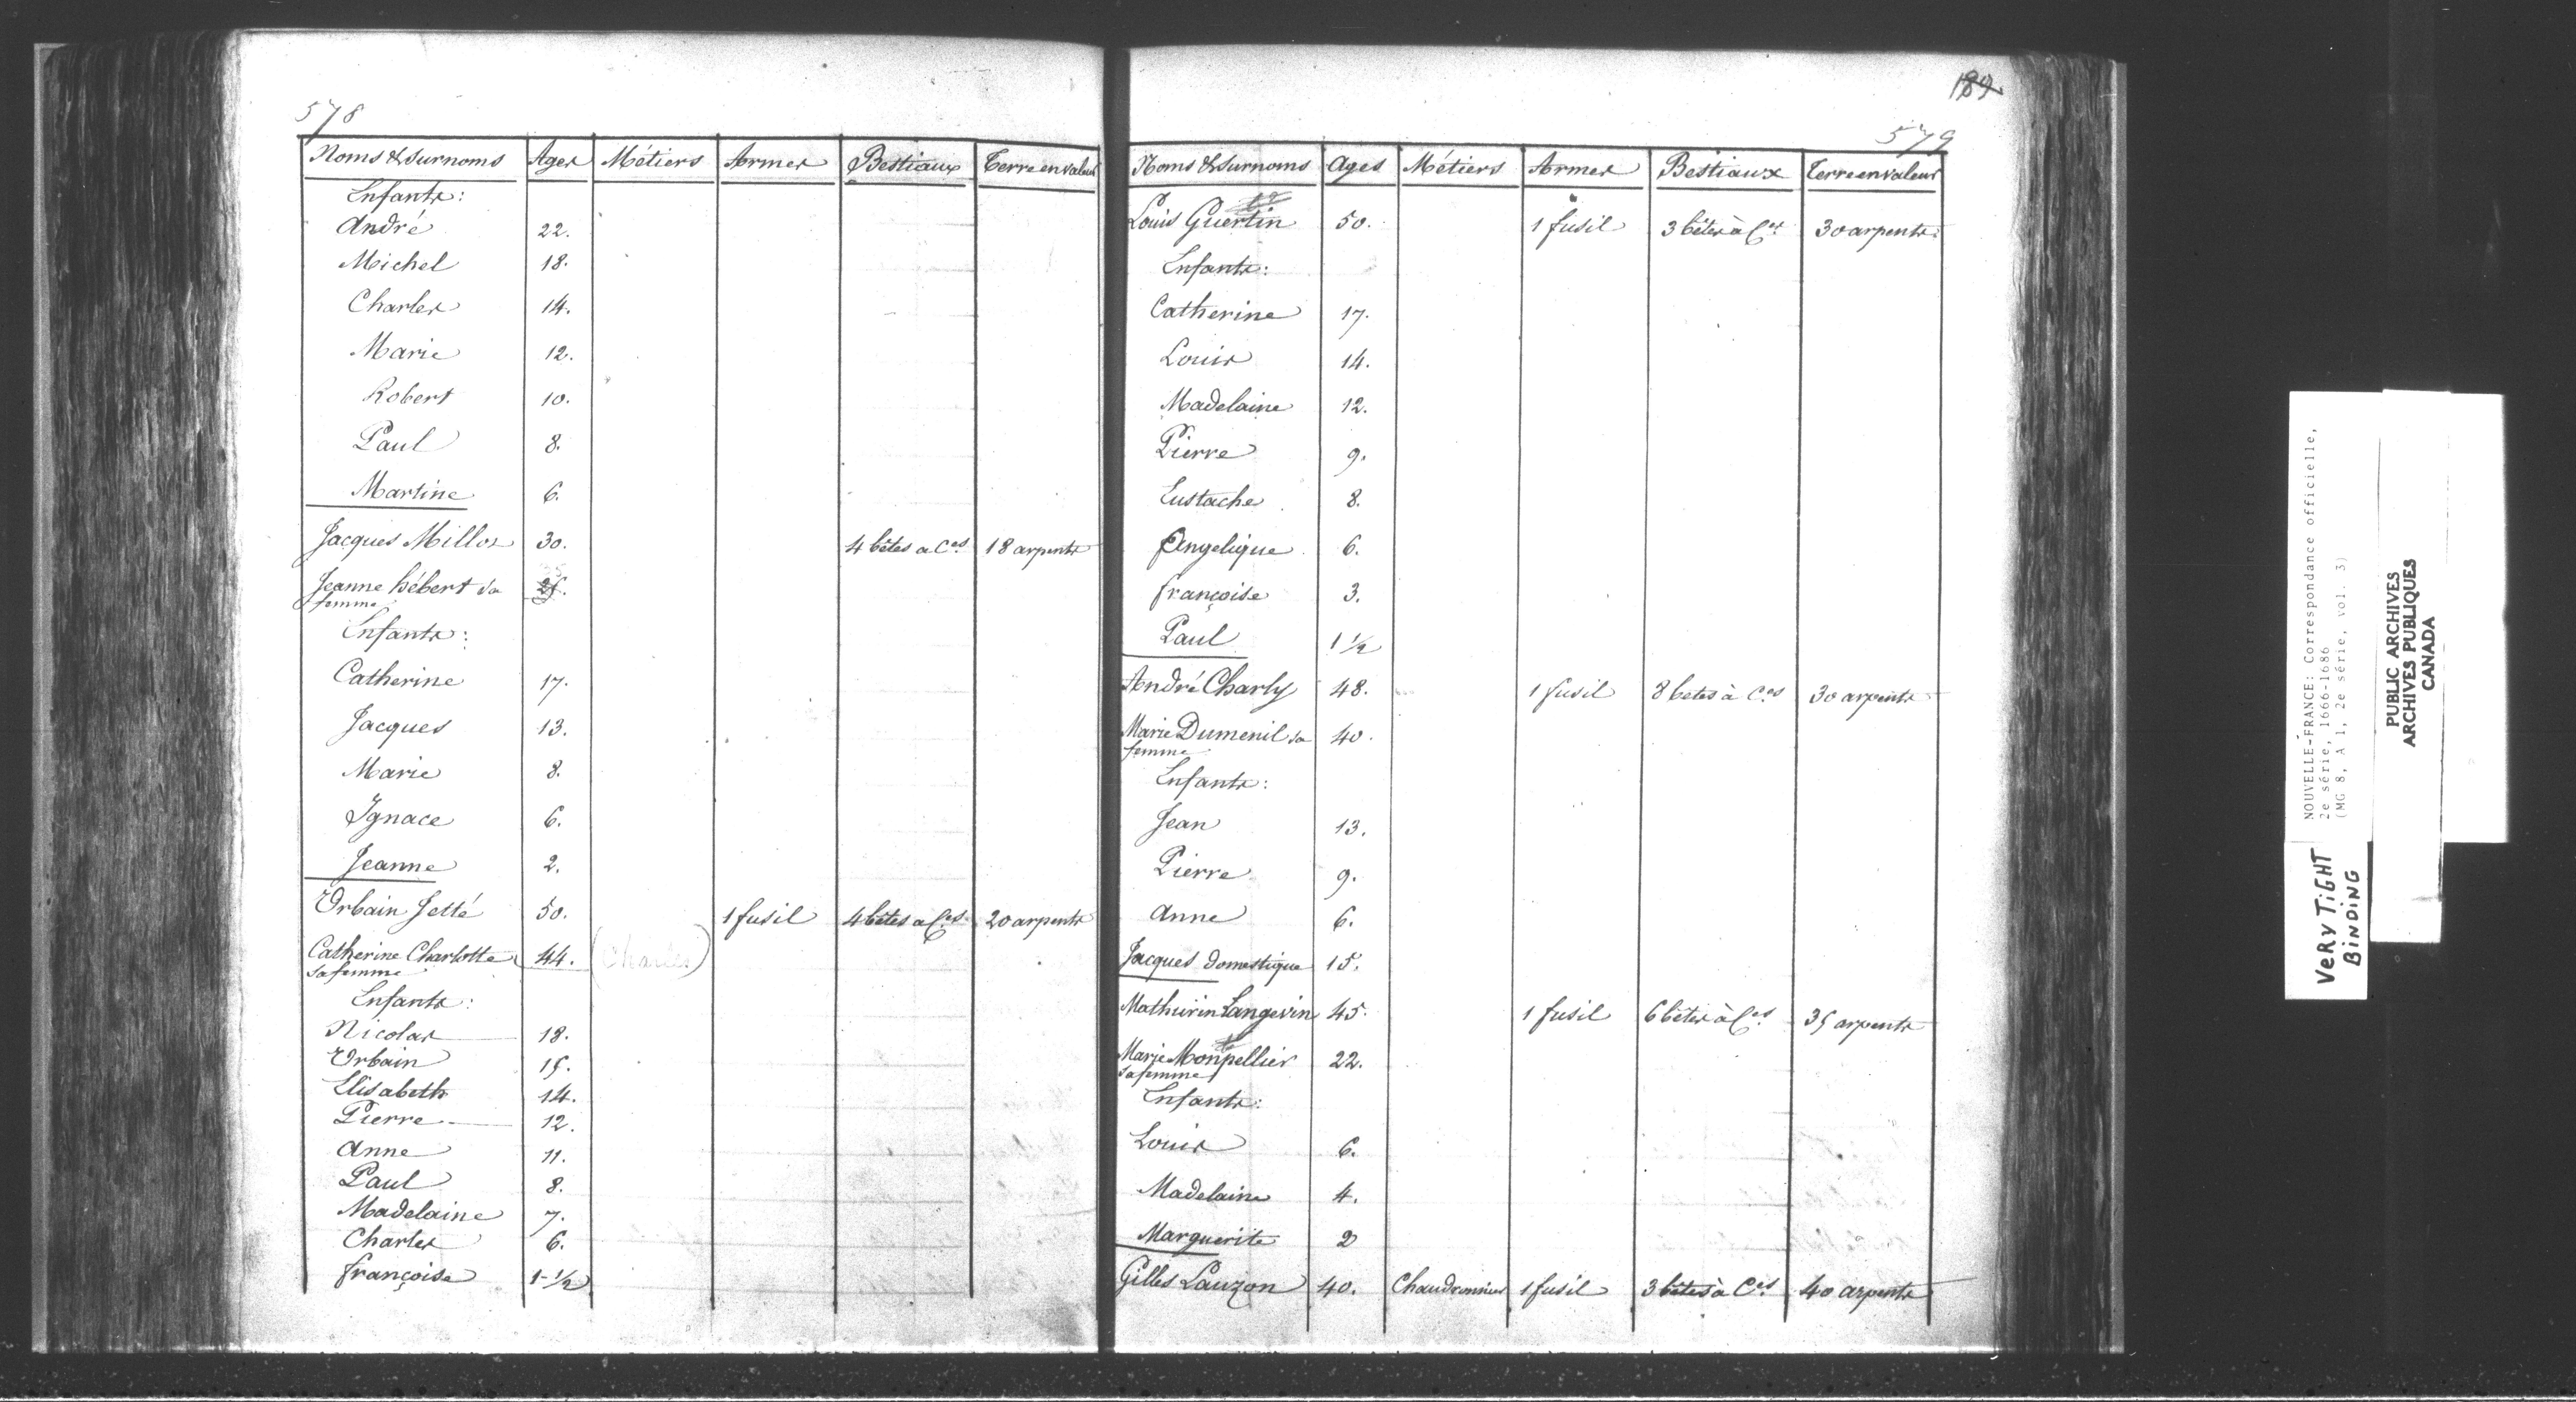 578
Noms & Surnoms Ages Métiers Armes Bestiaux Terre en valeur
Enfants:
André 22.
Michel 18.
Charles 14.
Marie 12.
Robert 10.
Paul 8.
Martine 6.
Jacques Millot 30. 4 bêtes a Ces 18 arpents
Jeanne hébert sa
femme
Enfants:
Catherine 17.
Jacques 13.
Marie 8.
Ignace 6.
Jeanne 2.
Urbain Jetté 50. 1 fusil 4 bêtes a Ces 20 arpents
Catherine Charlotte 44. (Charles)
sa femme
Enfants:
Nicolas 18.
Urbain 15.
Elisabeth 14.
Pierre 12.
Anne 11.
Paul 8.
Madelaine 7.
Charles 6.
françoise 1-½
189
579
Noms & Surnoms Ages Métiers Armes Bestiaux Terre en valeur
Louis Guertin 50. 1 fusil 3 bêtes à Ces 30 arpents
Enfants:
Catherine 17.
Louis 14.
Madelaine 12.
Pierre 9.
Eustache 8.
Angelique 6.
françoise 3.
Paul 1 ½
André Charly 48. 1 fusil 8 betes à Ces 30 arpents
Marie Dumenil sa 40.
femme
Enfants:
Jean 13.
Pierre 9.
Anne 6.
Jacques domestique 15.
Mathurin Langevin 45. 1 fusil 6 bêtes à Ces 35 arpents
Marie Monpellier 22.
sa femme
Enfants:
Louis 6.
Madelaine 4.
Marguerite 2
Gilles Lauzon 40. Chaudronnier 1 fusil 3 bêtes à Ces 40 arpents
NOUVELLE-FRANCE: Correspondance officielle,
2e série, 1666-1686
(MG 8, A 1, 2e série, vol. 3)
VERY TIGHT
BINDING
PUBLIC ARCHIVES
ARCHIVES PUBLIQUES
CANADA